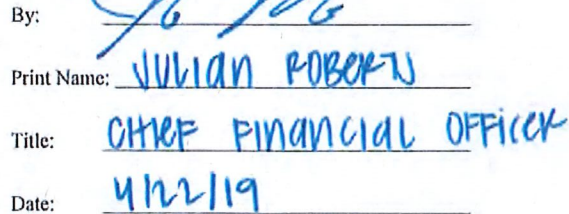 By:
Print Name: JULIAN ROBERTS
Title: CHIEF FINANCIAL OFFICER
Date: 4/22/19